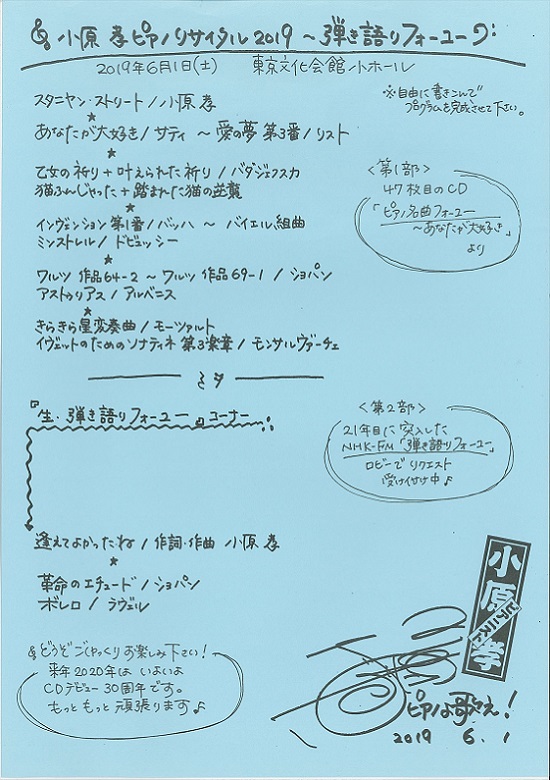 & 小原 孝 ピアノリサイタル 2019 ～弾き語りフォーユー
2019年6月1日(土) 東京文化会館 小ホール
※自由に書きこんで
プログラムを完成させて下さい。
スタニヤン・ストリート / 小原 孝
★
あなたが大好き / サティ ～ 愛の夢 第3番 / リスト
★
乙女の祈り + 叶えられた祈り / バダジェフスカ
猫ふんじゃった + 踏まれた猫の逆襲
★
インヴェンション 第1番 / バッハ ～ バイエル組曲
ミンストレル / ドビュッシー
★
ワルツ 作品64-2 ～ ワルツ 作品69-1 / ショパン
アストゥリアス / アルベニス
★
きらきら星変奏曲 / モーツァルト
イヴェットのためのソナティネ 第3楽章 / モンサルヴァーチェ
<第1部>
47枚目のCD
「ピアノ名曲フォーユー
～あなたが大好き」
より
『生・弾き語りフォーユー』コーナー
<第2部>
21年目に突入した
NHK-FM「弾き語りフォーユー」
ロビーでリクエスト
受け付け中♪
逢えてよかったね / 作詞・作曲 小原 孝
★
革命のエチュード / ショパン
ボレロ / ラヴェル
& どうぞごゆっくりお楽しみ下さい!
来年2020年は いよいよ
CDデビュー30周年です。
もっと もっと 頑張ります♪
小原 孝
ピアニスト
ピアノよ歌え!
2019 6. 1